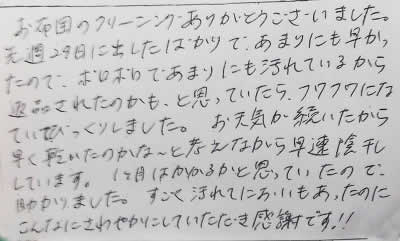 お布団のクリーニングありがとうございました。
先週28日に出したばかりで、あまりにも早かっ
たので、ボロボロであまりにも汚れているから
返品されたのかも、と思っていたら、フワフワにな
っていてびっくりしました。 お天気が続いたから
早く乾いたのかな~と考えながら早速陰干し
しています。 1ヶ月はかかるかと思っていたので、
助かりました。 すごく汚れてにおいもあったのに
こんなにさわやかにしていただき感謝です!!